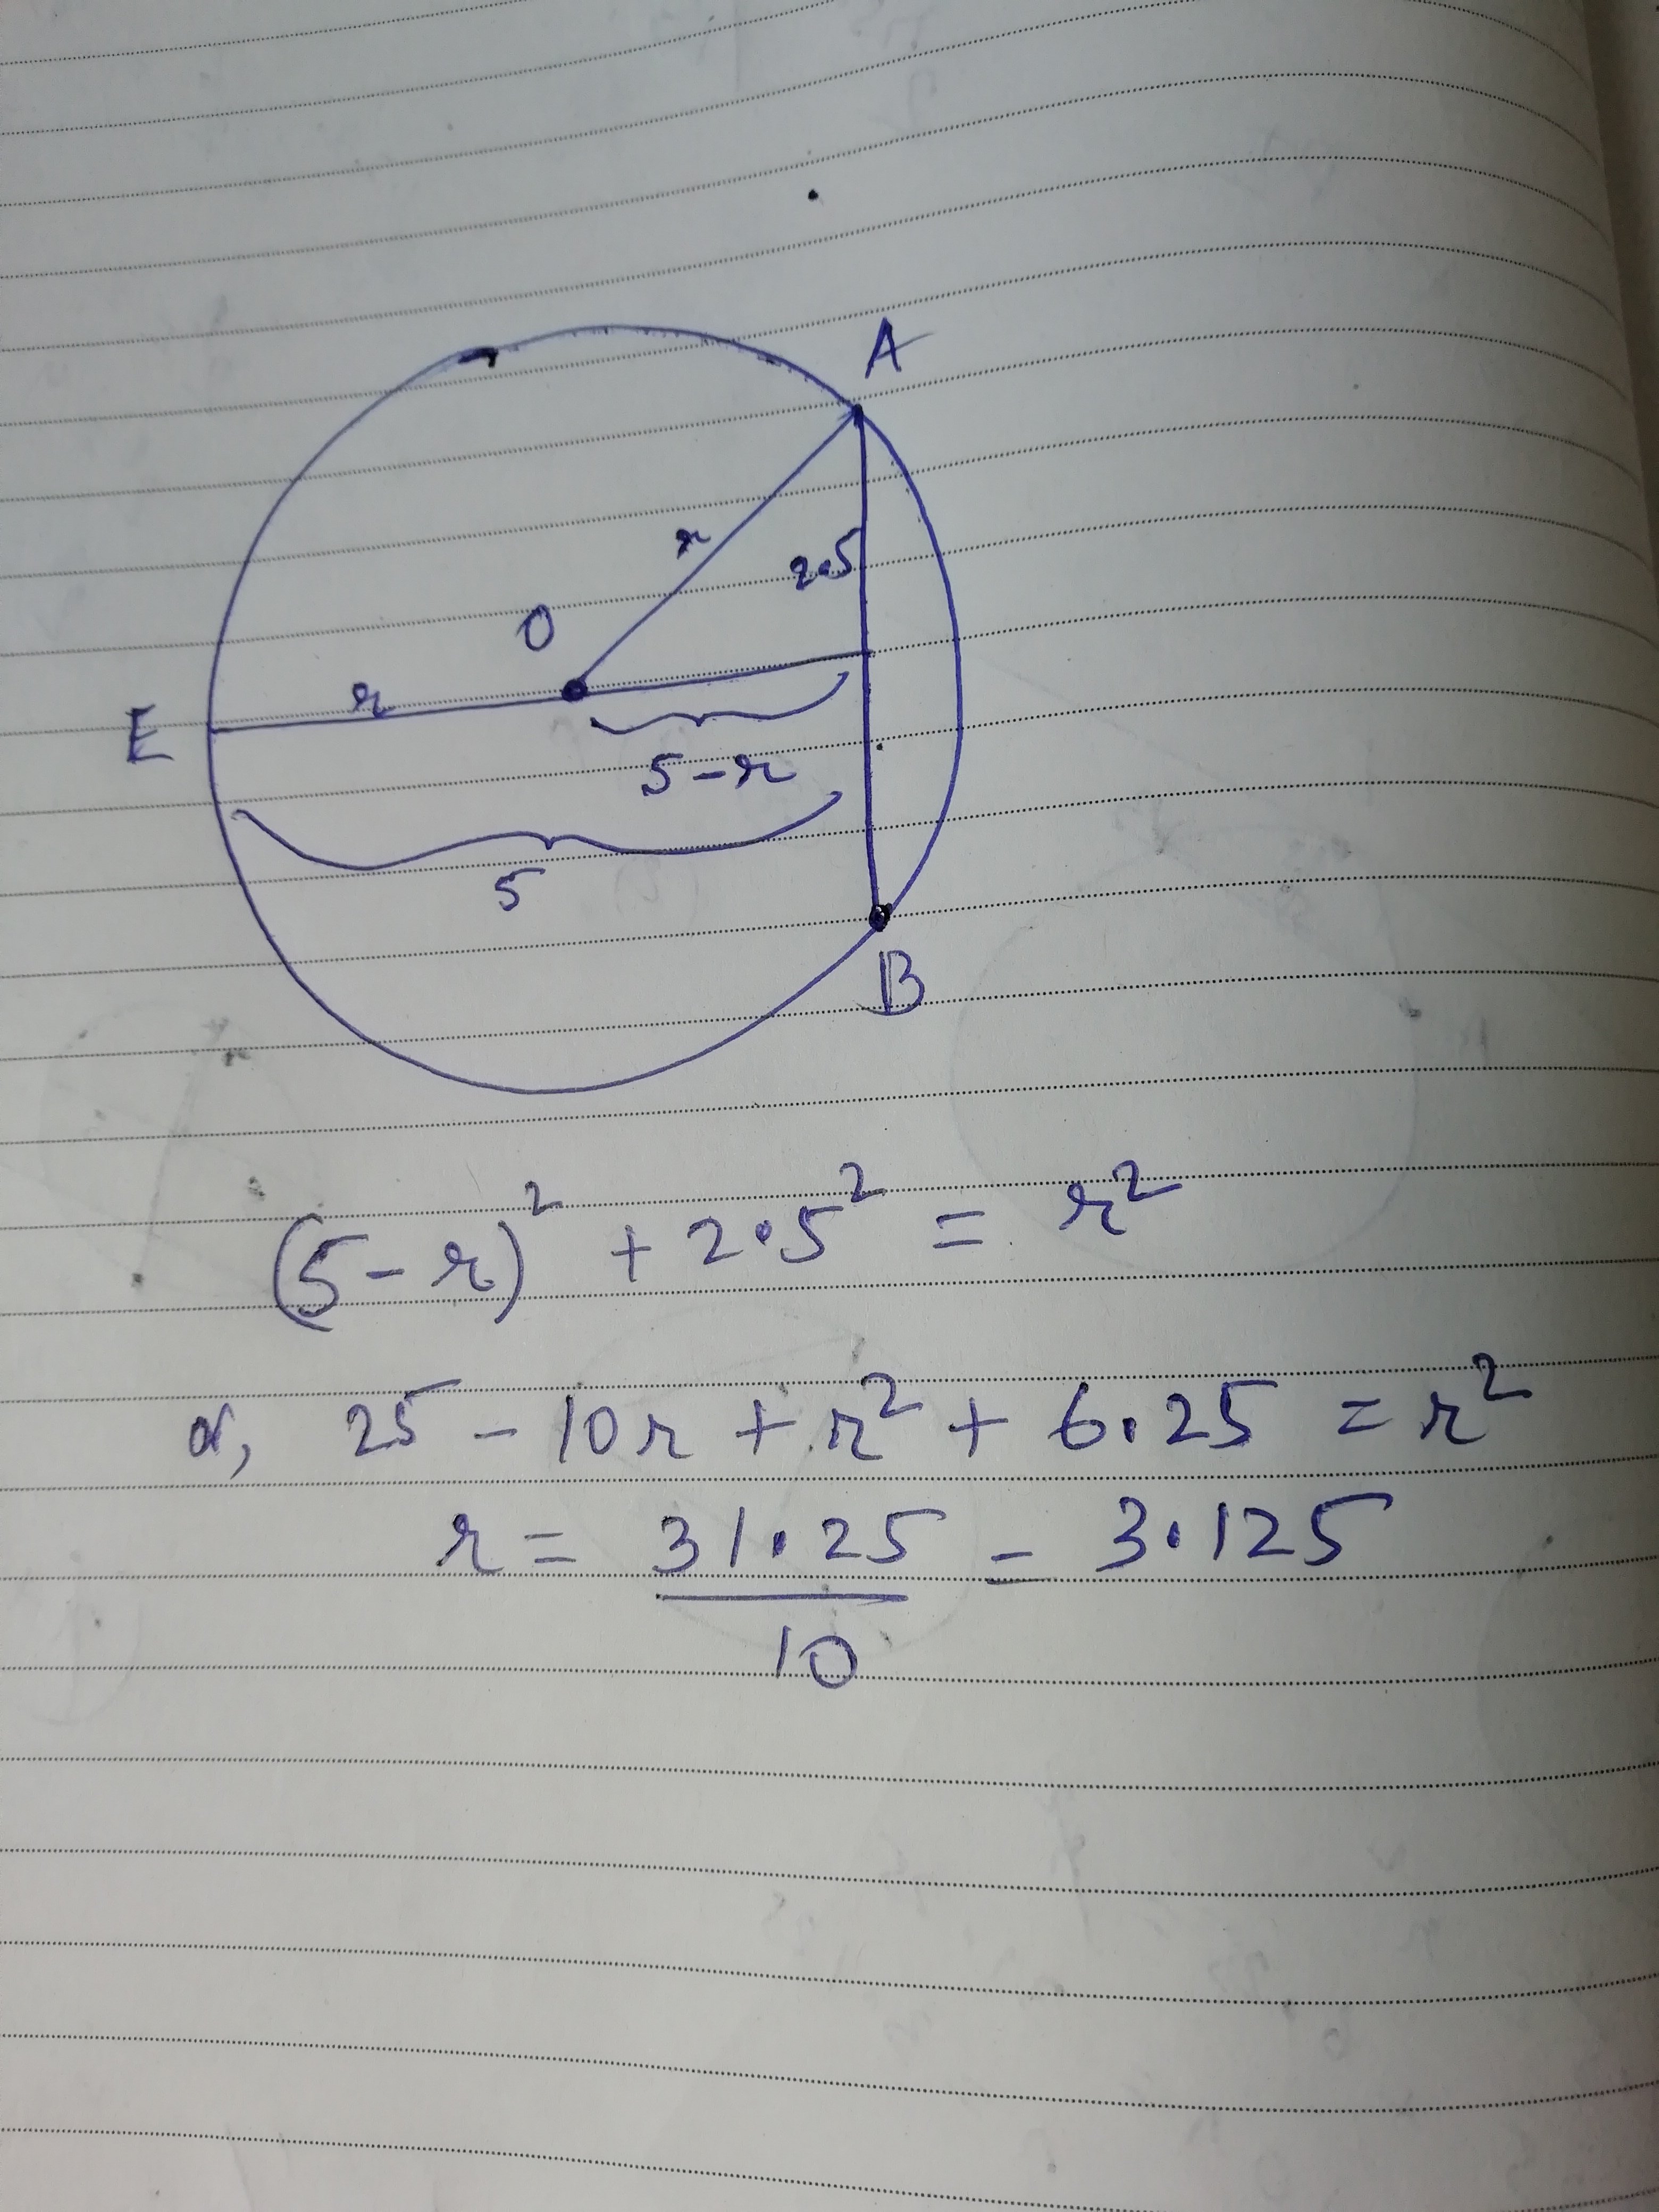 A
r
2.5
O
r
E
5-r
5
B
(5-r)² + 2.5² = r²
or, 25 - 10r + r² + 6.25 = r²
r = 31.25/10 = 3.125